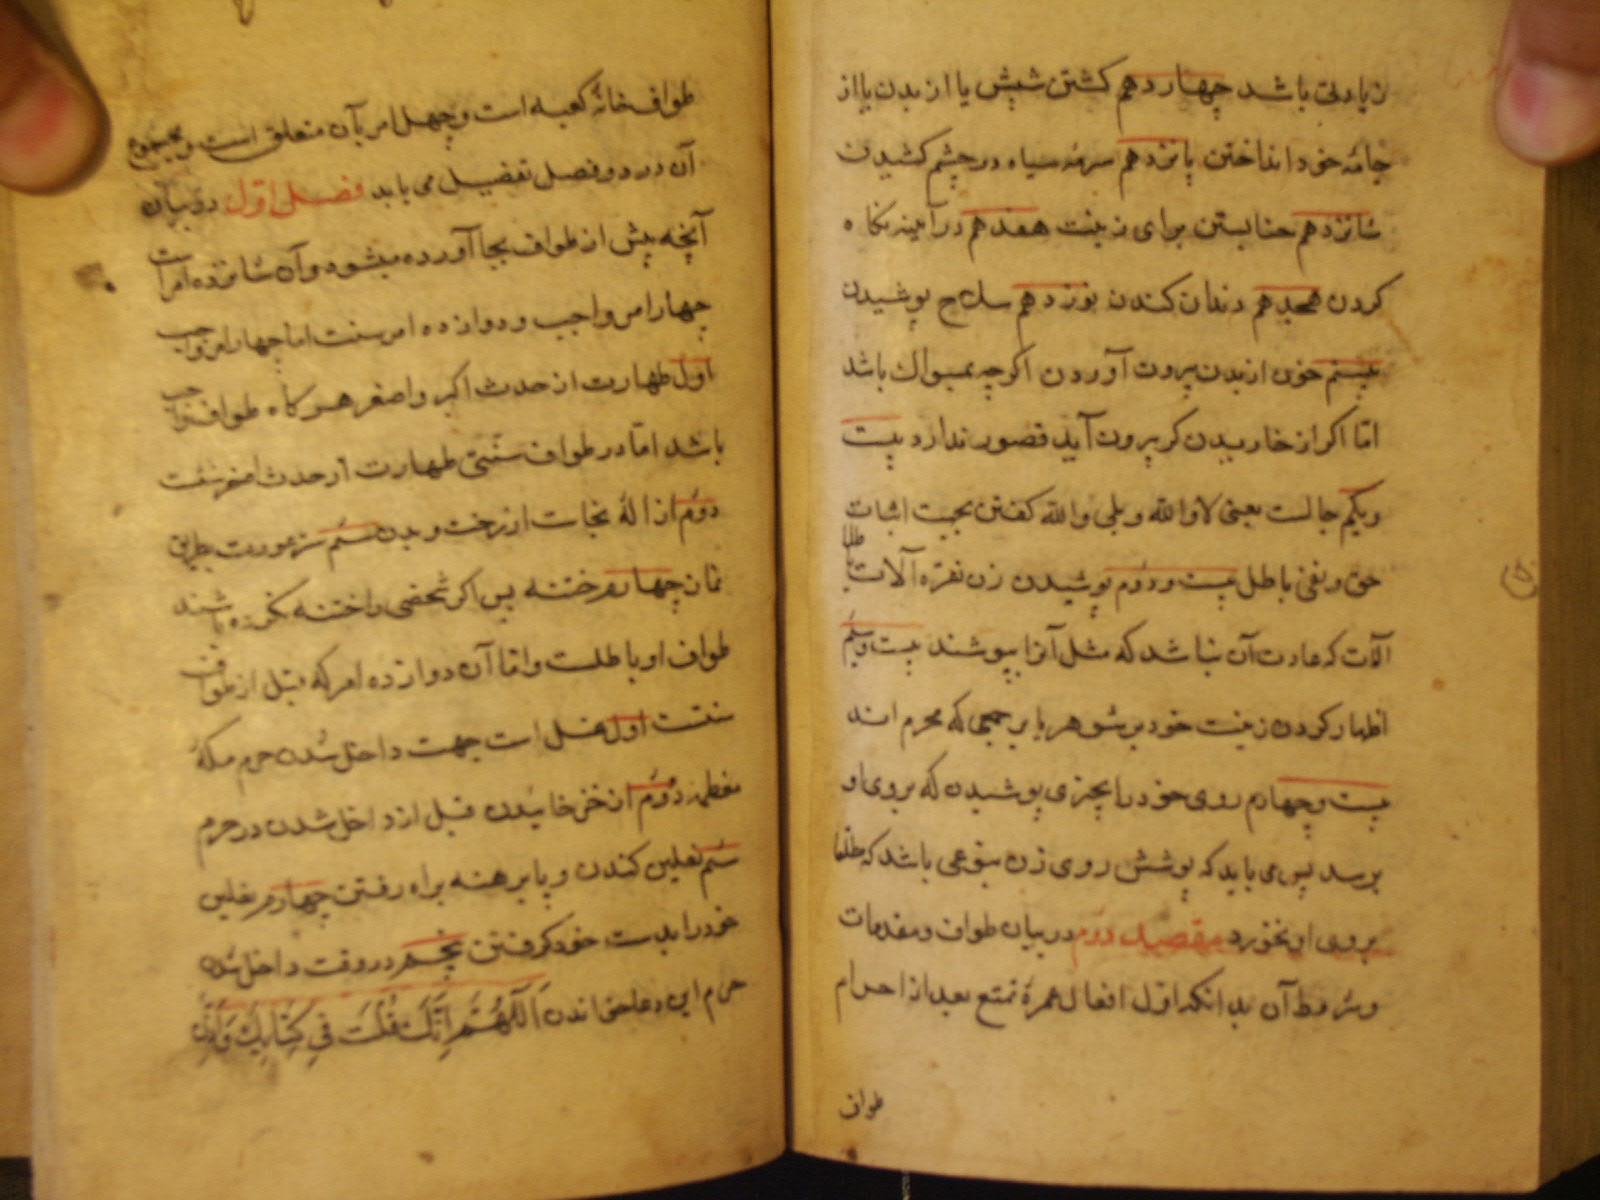 زیادتی باشد چهاردهم کشتن شپش یا از بدن یا از
جامه خود انداختن پانزدهم سرمه سیاه در چشم کشیدن
شانزدهم حنا بستن برای زینت هفدهم در آینه نگاه
کردن هجدهم دندان کندن نوزدهم سلاح پوشیدن
بیستم خون از بدن بیرون آوردن اگرچه بمسواک باشد
اما اگر از خاریدن کر بیرون آید قصور ندارد بیست
ویکم جدالست یعنی لا والله و بلی والله گفتن بجهت اثبات
حق و نفی باطل بیست و دوم پوشیدن زن نقره آلات یا طلا
آلات که عادت آن نباشد که مثل آنرا بپوشند بیست و سیم
اظهار کردن زینت خود بر شوهر یا بر جمعی که محرم اند
بیست و چهارم روی خود را بچیزی پوشیدن که بروی او
برسد پس می باید که پوشش روی زن بنوعی باشد که مطلقا
بروی او نخورد مقصد دوم در بیان طواف و مقدمات
وشروط آن بدانکه اول افعال عمرهٔ تمتع بعد از احرام
طواف
طواف خانهٔ کعبه است و چهل امر بآن متعلق است و مجموع
آن در دو فصل تفصیل می یابد فصل اول در بیان
آنچه پیش از طواف بجا آورده میشود و آن شانزده امر است
چهار امر واجب و دوازده امر سنت اما چهار امر واجب
اول طهارت از حدث اکبر و اصغر هر گاه طواف واجب
باشد اما در طواف سنتی طهارت از حدث اصغر سنت است
دوم ازالهٔ نجاست از رخت و بدن سیم ستر عورت بطریق
نماز چهارم ختنه پس اگر شخصی را ختنه نکرده باشند
طواف او باطلست و اما آن دوازده امر که قبل از طواف
سنتست اول غسل است جهت داخل شدن حرم مکهٔ
معظمه دوم اذخر خاییدن قبل از داخل شدن در حرم
سیم نعلین کندن و پا برهنه براه رفتن چهارم نعلین
خود را بدست خود گرفتن پنجم در وقت داخل شدن
حرم این دعا خواندن اَللّٰهُمَّ اِنَّكَ قُلْتَ فِي كِتَابِكَ وَاَذِّنْ